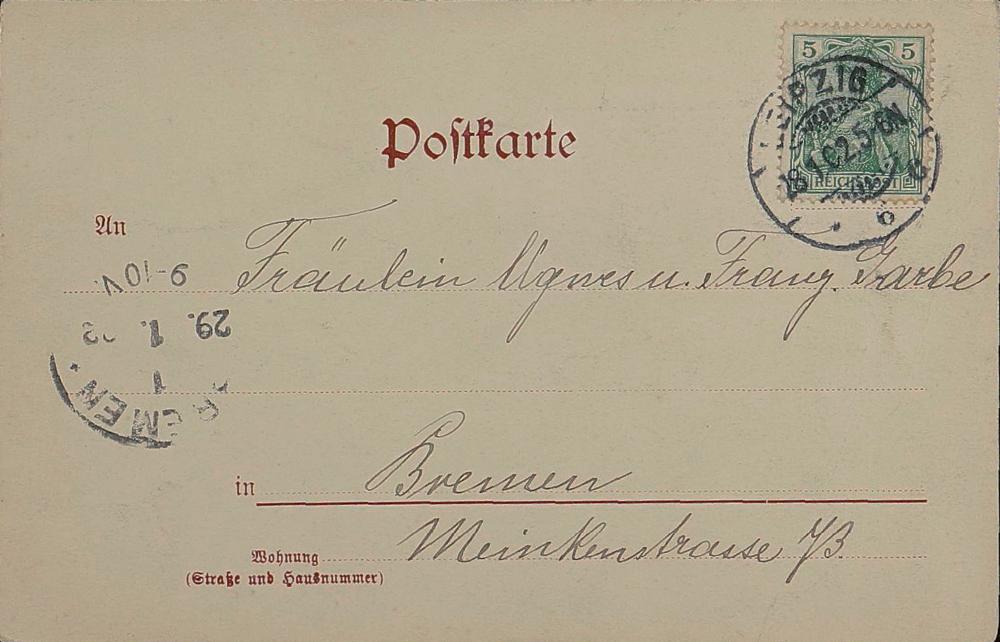 5 5
LEIPZIG
28.1.02.5-6N
REICHSPOST
6
Postkarte
An
Fräulein Agnes u. Franz. Garbe
9-10V.
29. 1.
1
BREMEN.
in Bremen
Meinkenstrasse
Wohnung
(Straße und Hausnummer)